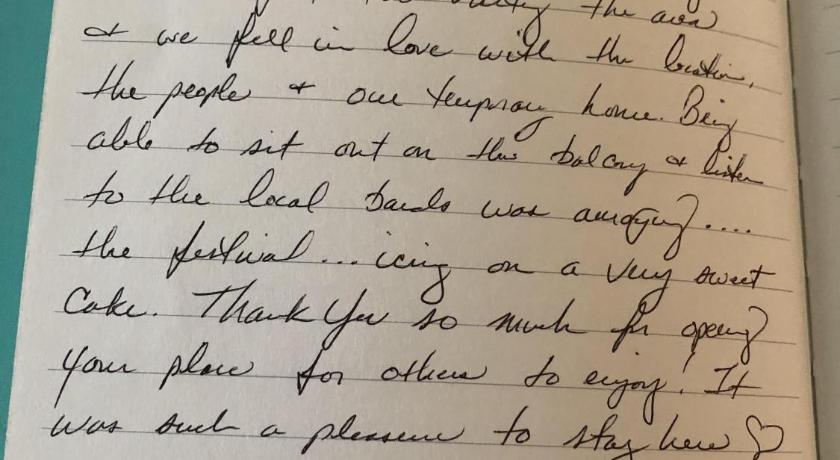 the area
& we fell in love with the location,
the people & our temporary home. Being
able to sit out on the balcony & listen
to the local bands was amazing....
the festival... icing on a very sweet
cake. Thank You so much for opening
your place for others to enjoy! It
was such a pleasure to stay here ♡